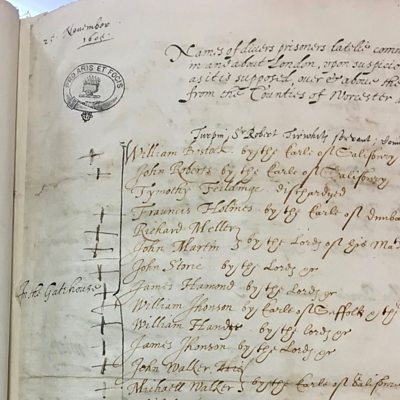 25 November
1605.
PRO ARIS ET FOCIS
Names of divers prisoners latelie comm
in and about London, upon suspicio
as it is supposed, over & above the
from the Counties of Worcester
Turpin, Sr Robert Tirwhits servant,
William Bostock by the Earle of Salisbury
John Roberts by the Earle of Salisbury
Tymothy Feildinge dischardged
Frauncis Holmes by the Earle of Dunba
Richard Mellen
John Martin by the Lords of his Ma
John Stone by the Lords &c
In the Gatehouse
James Hamond by the Lords &c
William Jhonson by Earle of Suffolk & the
William Hander by the lords &c
James Jhonson by the Lords &c
John Walker
Michaell Walker by the Earle of Salisbury